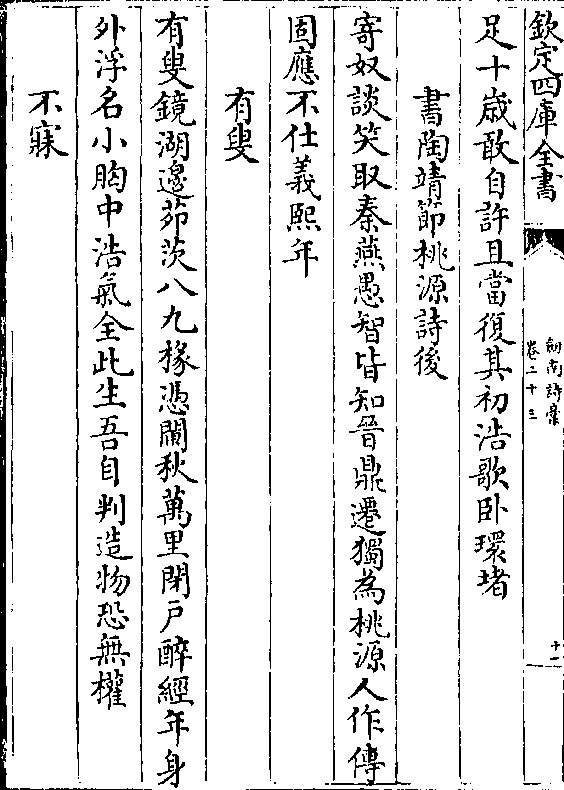 欽定四庫全書
劍南詩稾
卷二十三
十一
足十歳敢自許且當復其初浩歌卧環堵
書陶靖節桃源詩後
寄奴談笑取秦燕愚智皆知晉鼎遷獨為桃源人作傳
固應不仕義熙年
有叟
有叟鏡湖邊茆茨八九椽憑闌秋萬里閉戸醉經年身
外浮名小胸中浩氣全此生吾自判造物恐無權
不寐